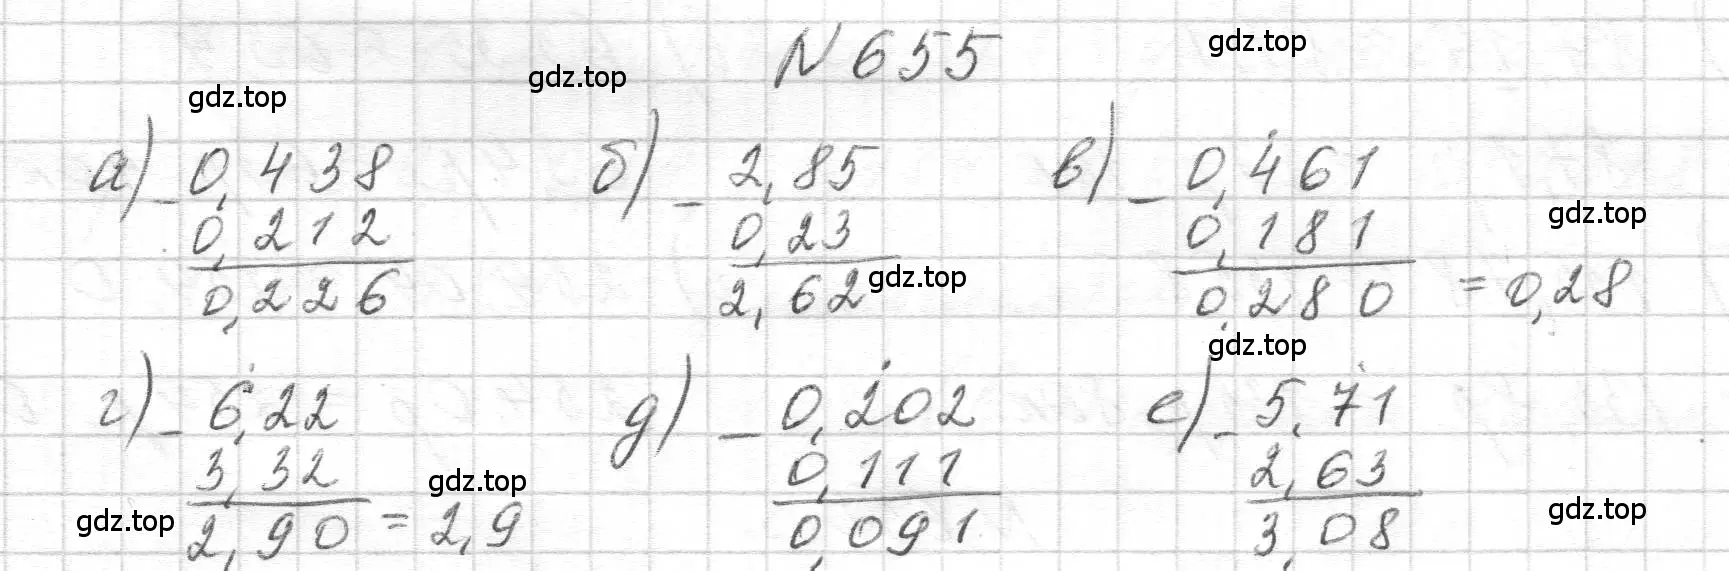 N 655
gdz.top
gdz.top
gdz.top
а) _ 0,438
0,212
0,226
б) _ 2,85
0,23
2,62
gdz.top
в) _ 0,461
0,181
0,280 = 0,28
gdz.top
gdz.top
г) _ 6,22
3,32
2,90 = 2,9
gdz.top
gdz.top
д) _ 0,202
0,111
0,091
е) _ 5,71
2,63
3,08
gdz.top